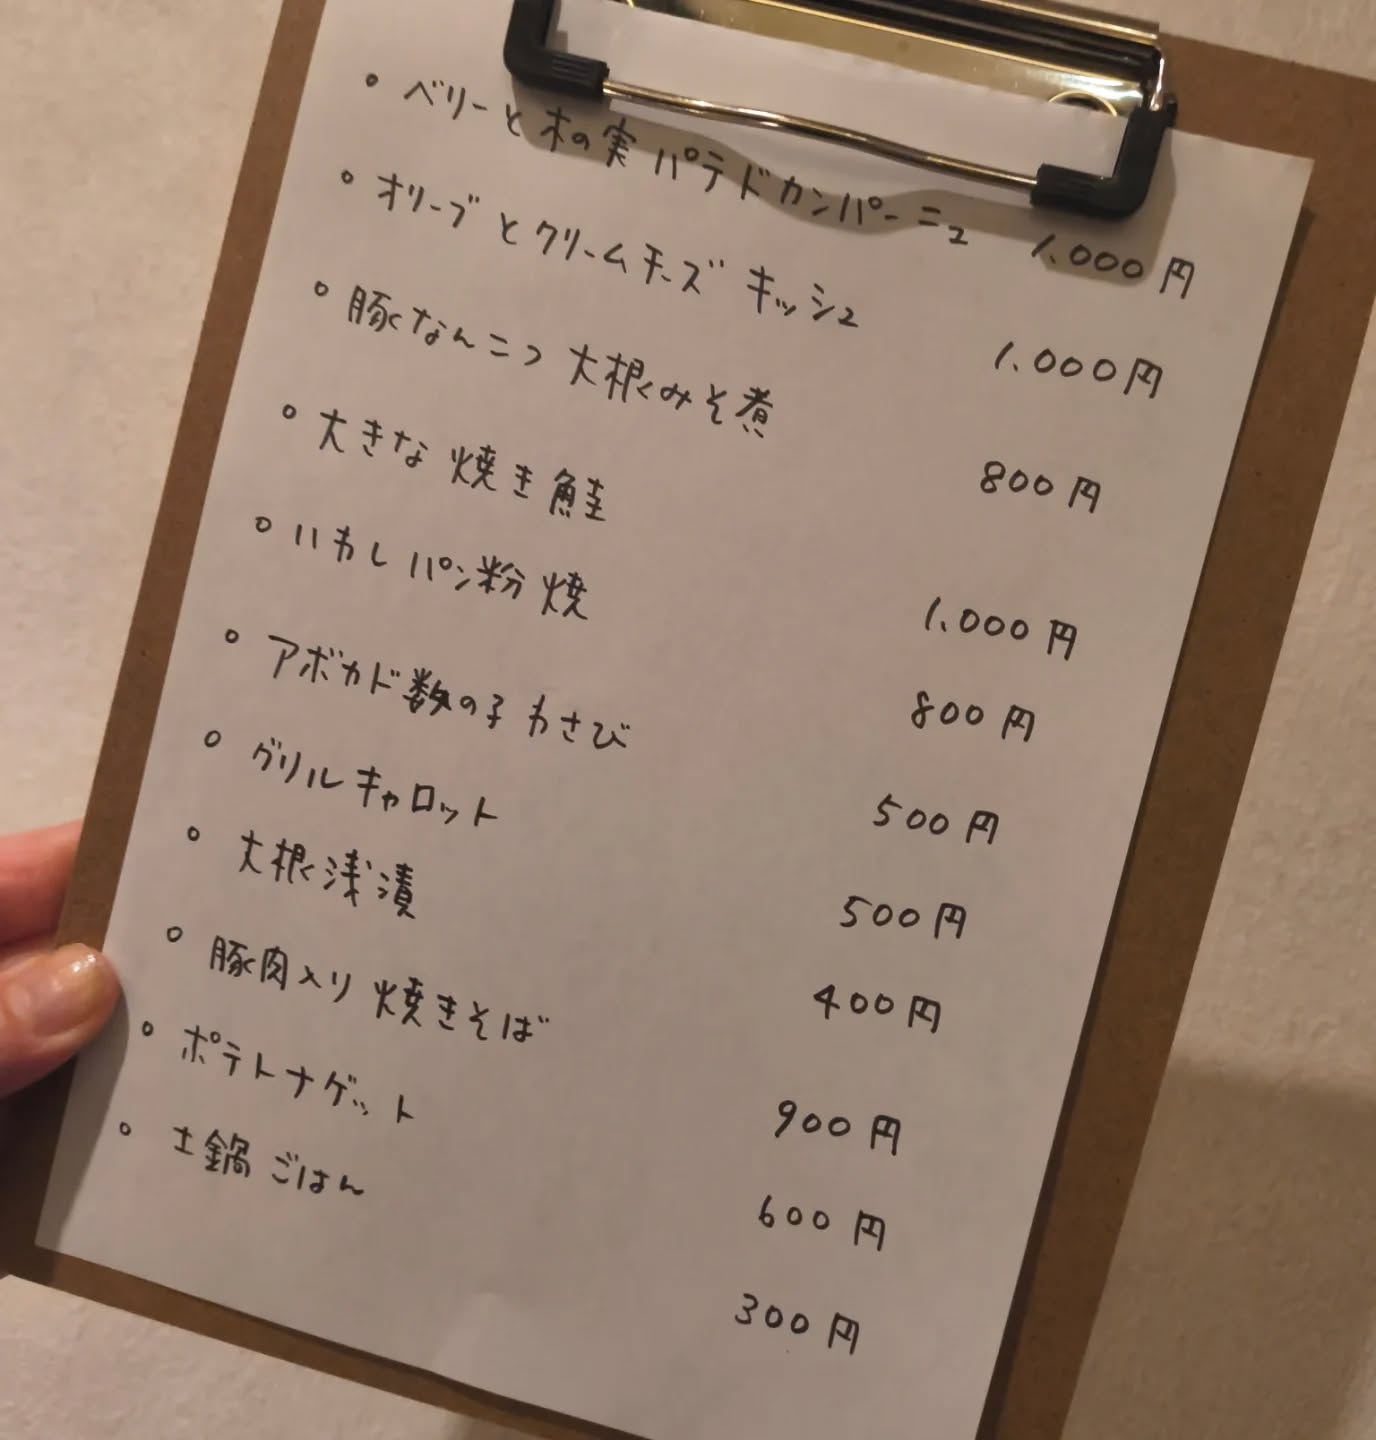 。ベリーと木の実 パテドカンパーニュ 1.000円
。オリーブとクリームチーズ キッシュ 1.000円
。豚なんこつ 大根みそ煮 800円
。大きな 焼き鮭 1.000円
。いわし パン粉焼 800円
。アボカド数の子わさび 500円
。グリルキャロット 500円
。大根浅漬 400円
。豚肉入り 焼きそば 900円
。ポテトナゲット 600円
。土鍋ごはん 300円